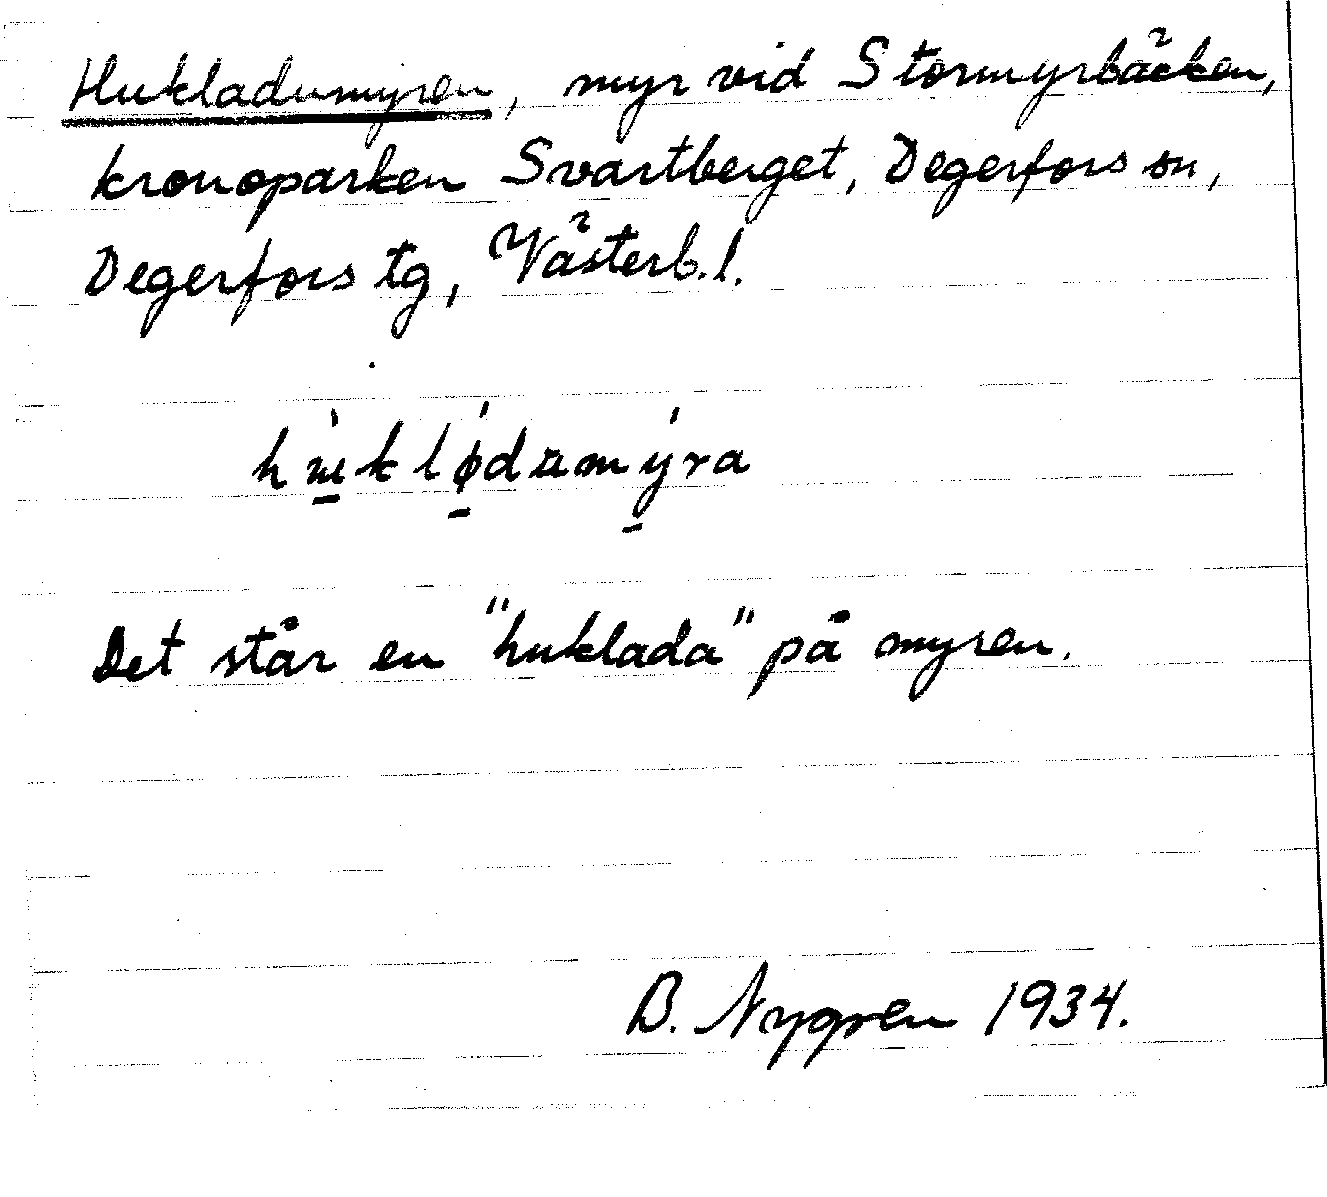 Hukladumyren, myr vid Stormyrbäcken,
kronoparken Svartberget, Degerfors sn,
Degerfors tg, Västerb.l.
Det står en "huklada" på myren.
B. Nygren 1934.